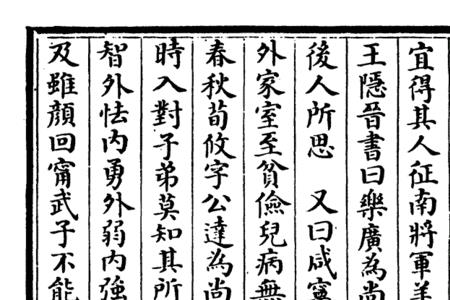 宜得其人征南將軍羊
王隱晉書曰樂廣為尚
後人所思　又曰咸寧
外家室至貧儉兒病無
春秋荀攸字公達為尚
時入對子弟莫知其所
智外怯內勇外弱內強
及雖顏回甯武子不能